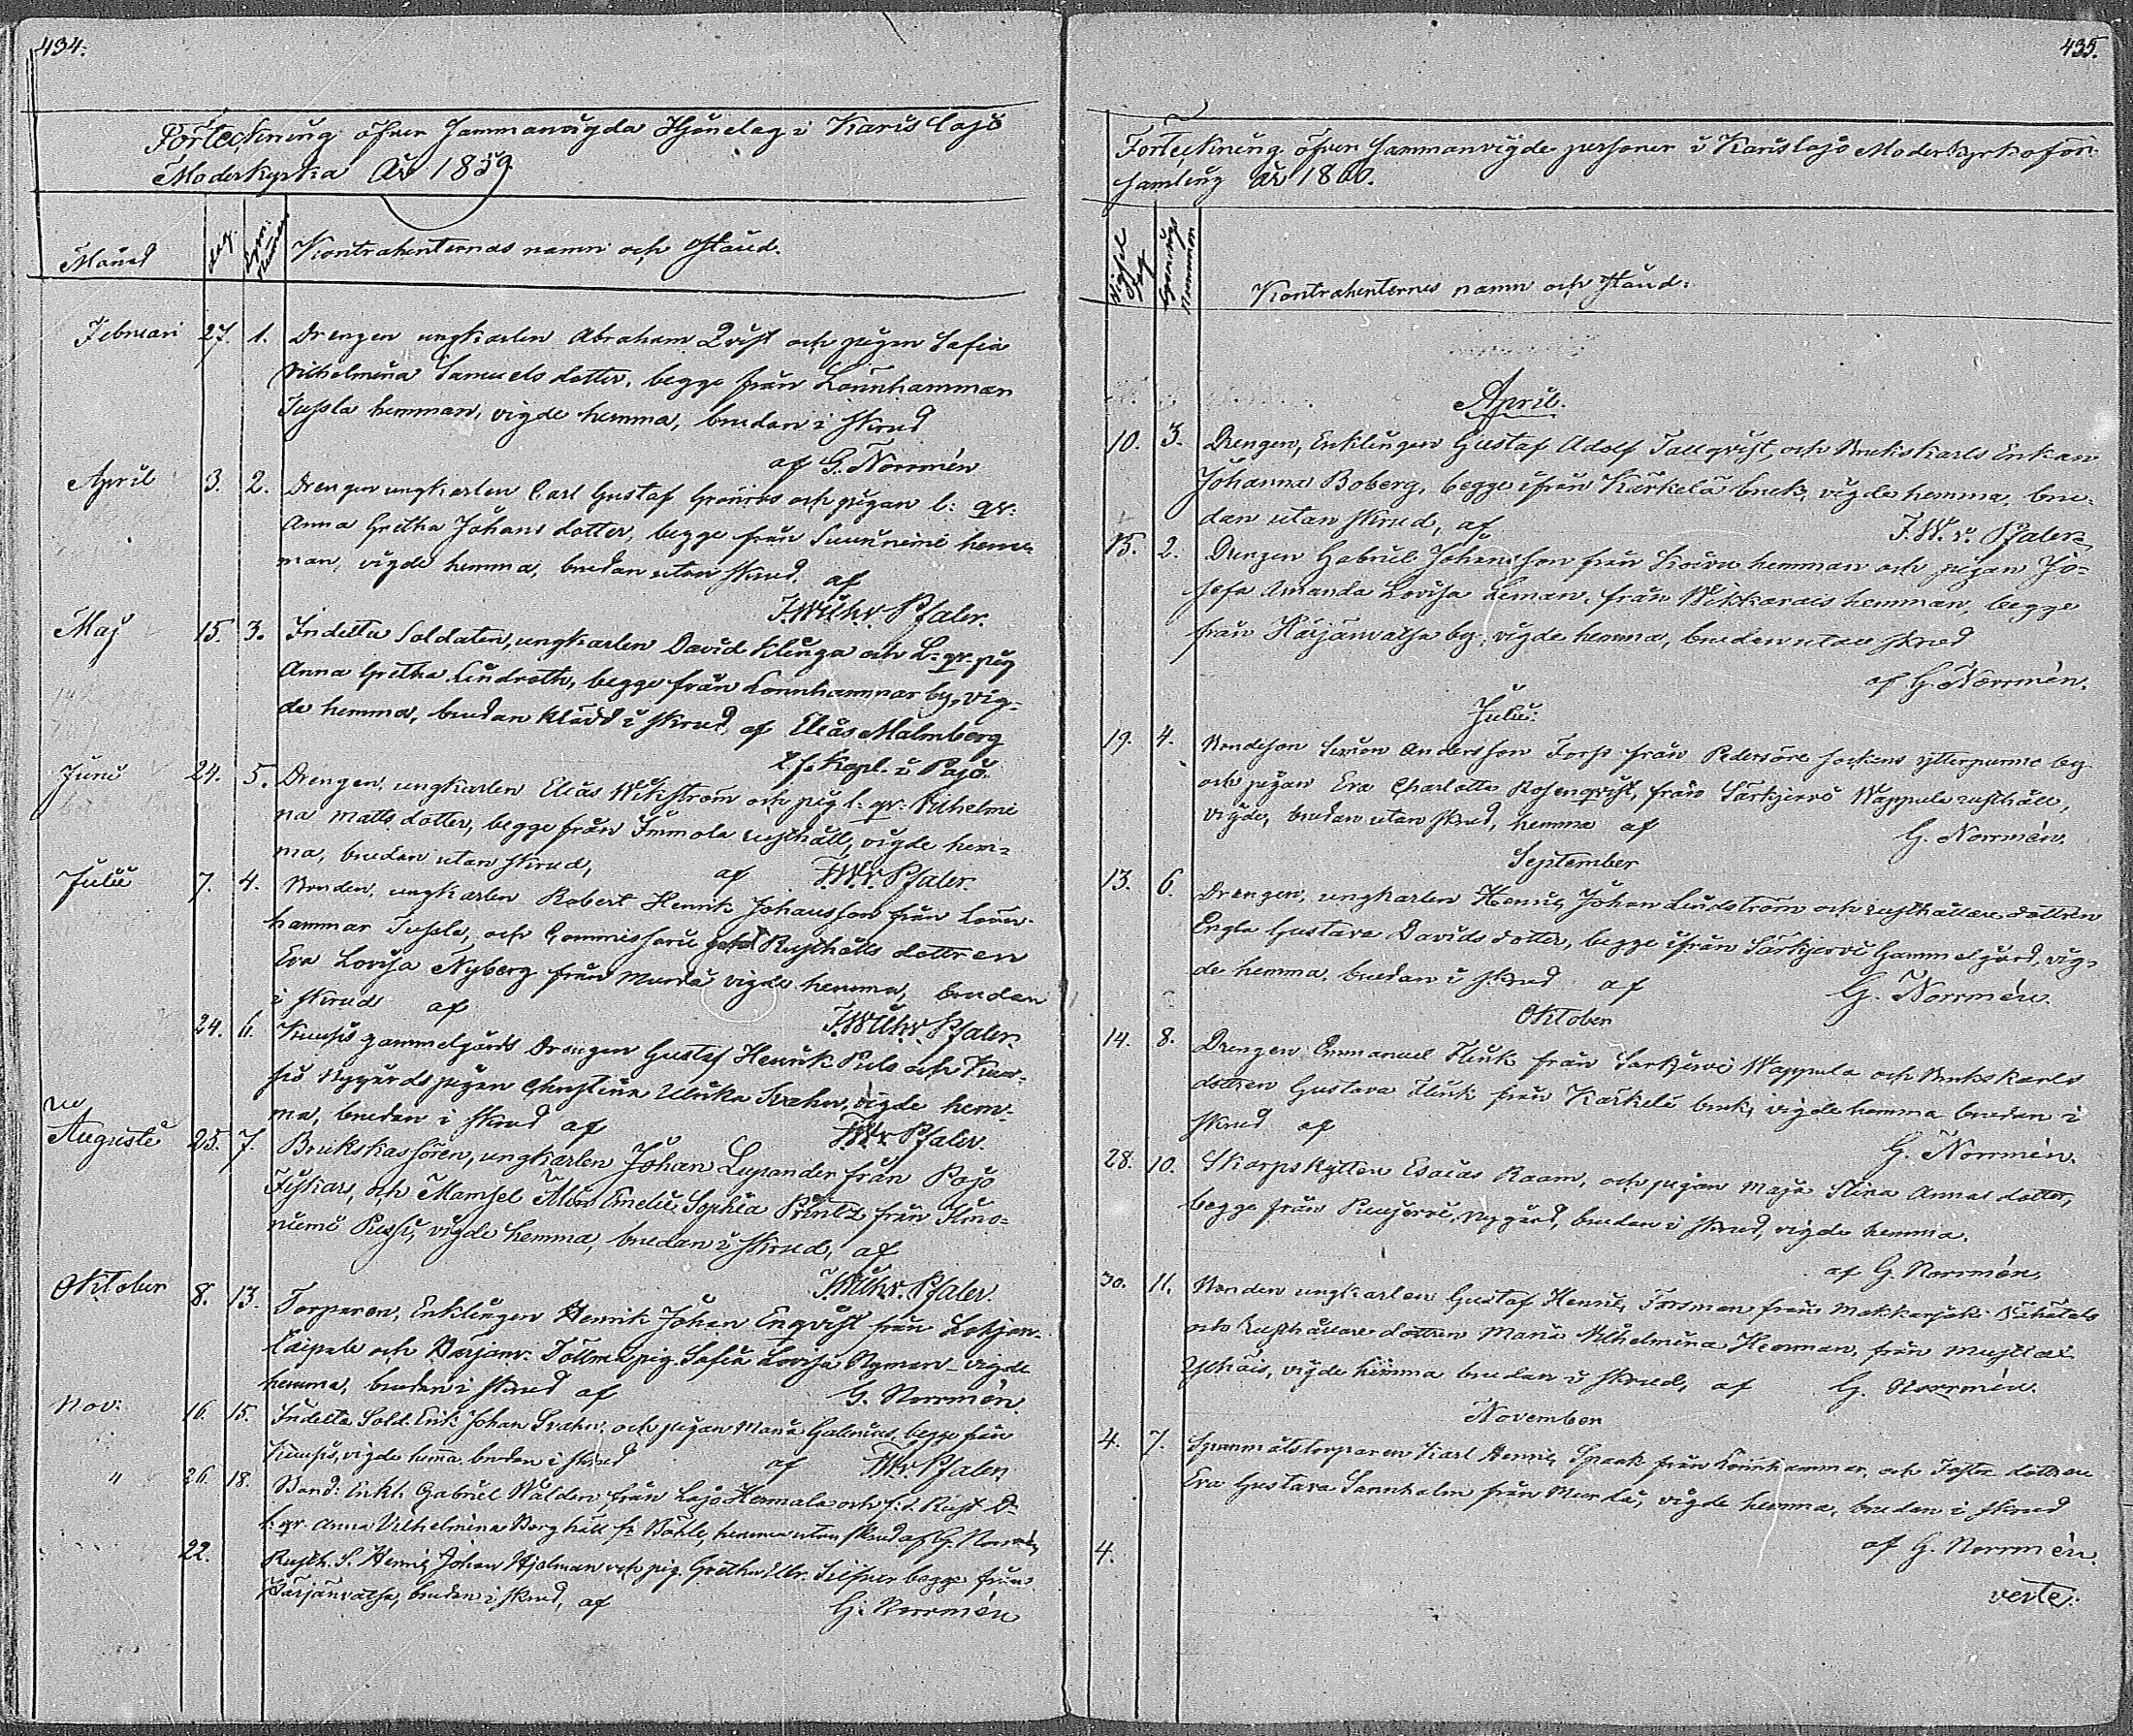 434.
Förteckning öfver Sammanvigda Hjonelag i Karislojo
Moderkyrka År 1859.
Månad Dag. Kontrahenternas namn och Stånd.
Februari 27. 1. Drengen ungkarlen Abraham Qvist och pigan Sofia
Vilhelmina Samuelsdotter, begge från Lönnhamman
Jussla hemman, vigde hemma, bruden i skrud
af G. Norrmén
April 3. 2. Drengen ungkarlen Carl Gustaf Grönroos och pigan l: qv:
Anna Gretha Johansdotter, begge från Suurniemi hem-
man, vigde hemma, bruden utan skrud, af
F.Wilh.v. Pfaler.
Maj 15. 3. Indelta Soldaten, ungkarlen David Klinga och L. qv. pig
Anna Gretha Lindroth, begge från Lönnhammar by, vig-
de hemma, bruden klädd i skrud af Elias Malmberg
t.f. Kapl. i Pojo.
Juni 24. 5. Drengen, ungkarlen Elias Wikström och pig l. qv: Vilhelmi
na Mattsdotter, begge från Immola rusthåll, vigde hem-
ma, bruden utan skrud, af F.W.v. Pfaler.
Julii 7. 4. Bonden, ungkarlen Robert Henrik Johansson från Lönn-
hammar Jussla, och Commissarii Rusthålls dottren
Eva Lovisa Nyberg från Murda vigde hemma, bruden
i skrud af F.Wilh.v. Pfaler.
24. 6. Kuusis gammelgårds Drengen Gustaf Henrik Puls och Kuu-
sis Nygårds pigan Christina Ulrika Svahn, vigde hem-
ma, bruden i skrud af F.W.v. Pfaler.
Augusti 25. 7. Brukskassören, ungkarlen Johan Lupander från Pojo
Fiskars, och Mamsel Alma Emelie Sophia Printz från
niemi Pussi, vigde hemma, bruden i skrud, af
F.Wilh.v. Pfaler.
Oktober 8. 13. Torparen, Enklingen Henrik Johan Enqvist från Lohjan-
taipale och Karjanv. Tollma pig. Sofia Lovisa Nyman vigde
hemma, bruden i skrud af G. Norrmén.
Nov: 16. 15. Indelta Sold. Erik Johan Svahn och pigan Maria Galenius, begge från
Kuusis, vigde hema, bruden i skrud af F.W.v. Pfaler.
" 26. 18. Bond: Enkl. Gabriel Wälden, från Lojo Hermala och f.d. Rust. D.
l. qv. Anna Vilhelmina Berghäll fr. Böhle, hemma utan skrud af G. Norrmén
22. Rusth. S. Henric Johan Hjelman och pig. Gretha Ulr. Silfver begge från
Härjänvatsa, bruden i skrud, af G. Norrmén
435.
Förteckning öfver Sammanvigde personer i Karislojo Moderkyrkoför-
samling År 1860.
Vigsel Dag Lysnings Nummer Kontrahenternes namn och stånd:
April.
10. 3. Drengen, Enklingen Gustaf Adolf Tallqvist, och Brukskarls Enkan
Johanna Boberg, begge ifrån Kärkelä bruk, vigde hemma, bru-
den utan skrud, af F.W.v. Pfaler.
15. 2. Drengen Gabriel Johansson från Koivu hemman och pigan Jo-
sefa Amanda Lovisa Liman, från Wikkarais hemman, begge
från Härjänvatsa by, vigde hemma, bruden utan skrud
af G. Norrmén.
Julii:
19. 4. Bondeson Simon Andersson Forss från Pedersöre sockens ytterpurmo by
och pigan Eva Charlotta Rosenqvist, från Särkjervi Wappula rusthåll,
vigde, bruden utan skrud, hemma af G. Norrmén.
September
13. 6. Drengen, ungkarlen Henric Johan Lindström och rusthållare dottren
Engla Gustava Davidsdotter, begge ifrån Särkjervi Gammelgård, vig-
de hemma, bruden i skrud af G. Norrmén.
Oktober
14. 8. Drengen Emmanuel Flink från Särkjervi Wappula och Brukskarls
dottren Gustava Flink från Kärkelä bruk, vigde hemma bruden i
skrud af G. Norrmén.
28. 10. Skarpskytten Esaias Raam, och pigan Maja Stina Annasdotter,
begge från Puujervi, Nygård, bruden i skrud, vigde hemma.
af G. Norrmén.
30. 11. Bonden ungkarlen Gustaf Henric Forsman från Makkarjoki
och Rusthållaredottren Maria Vilhelmina Heerman, från Mustlax
vigde hemma bruden i skrud, af G. Norrmén.
November
4. 7. Spannmålstorparen Karl Henric Spaak från Lönnhammar, och Foster dottren
Eva Gustava Sannholm från Murda, vigde hemma, bruden i skrud
4. af G. Norrmén.
verte.